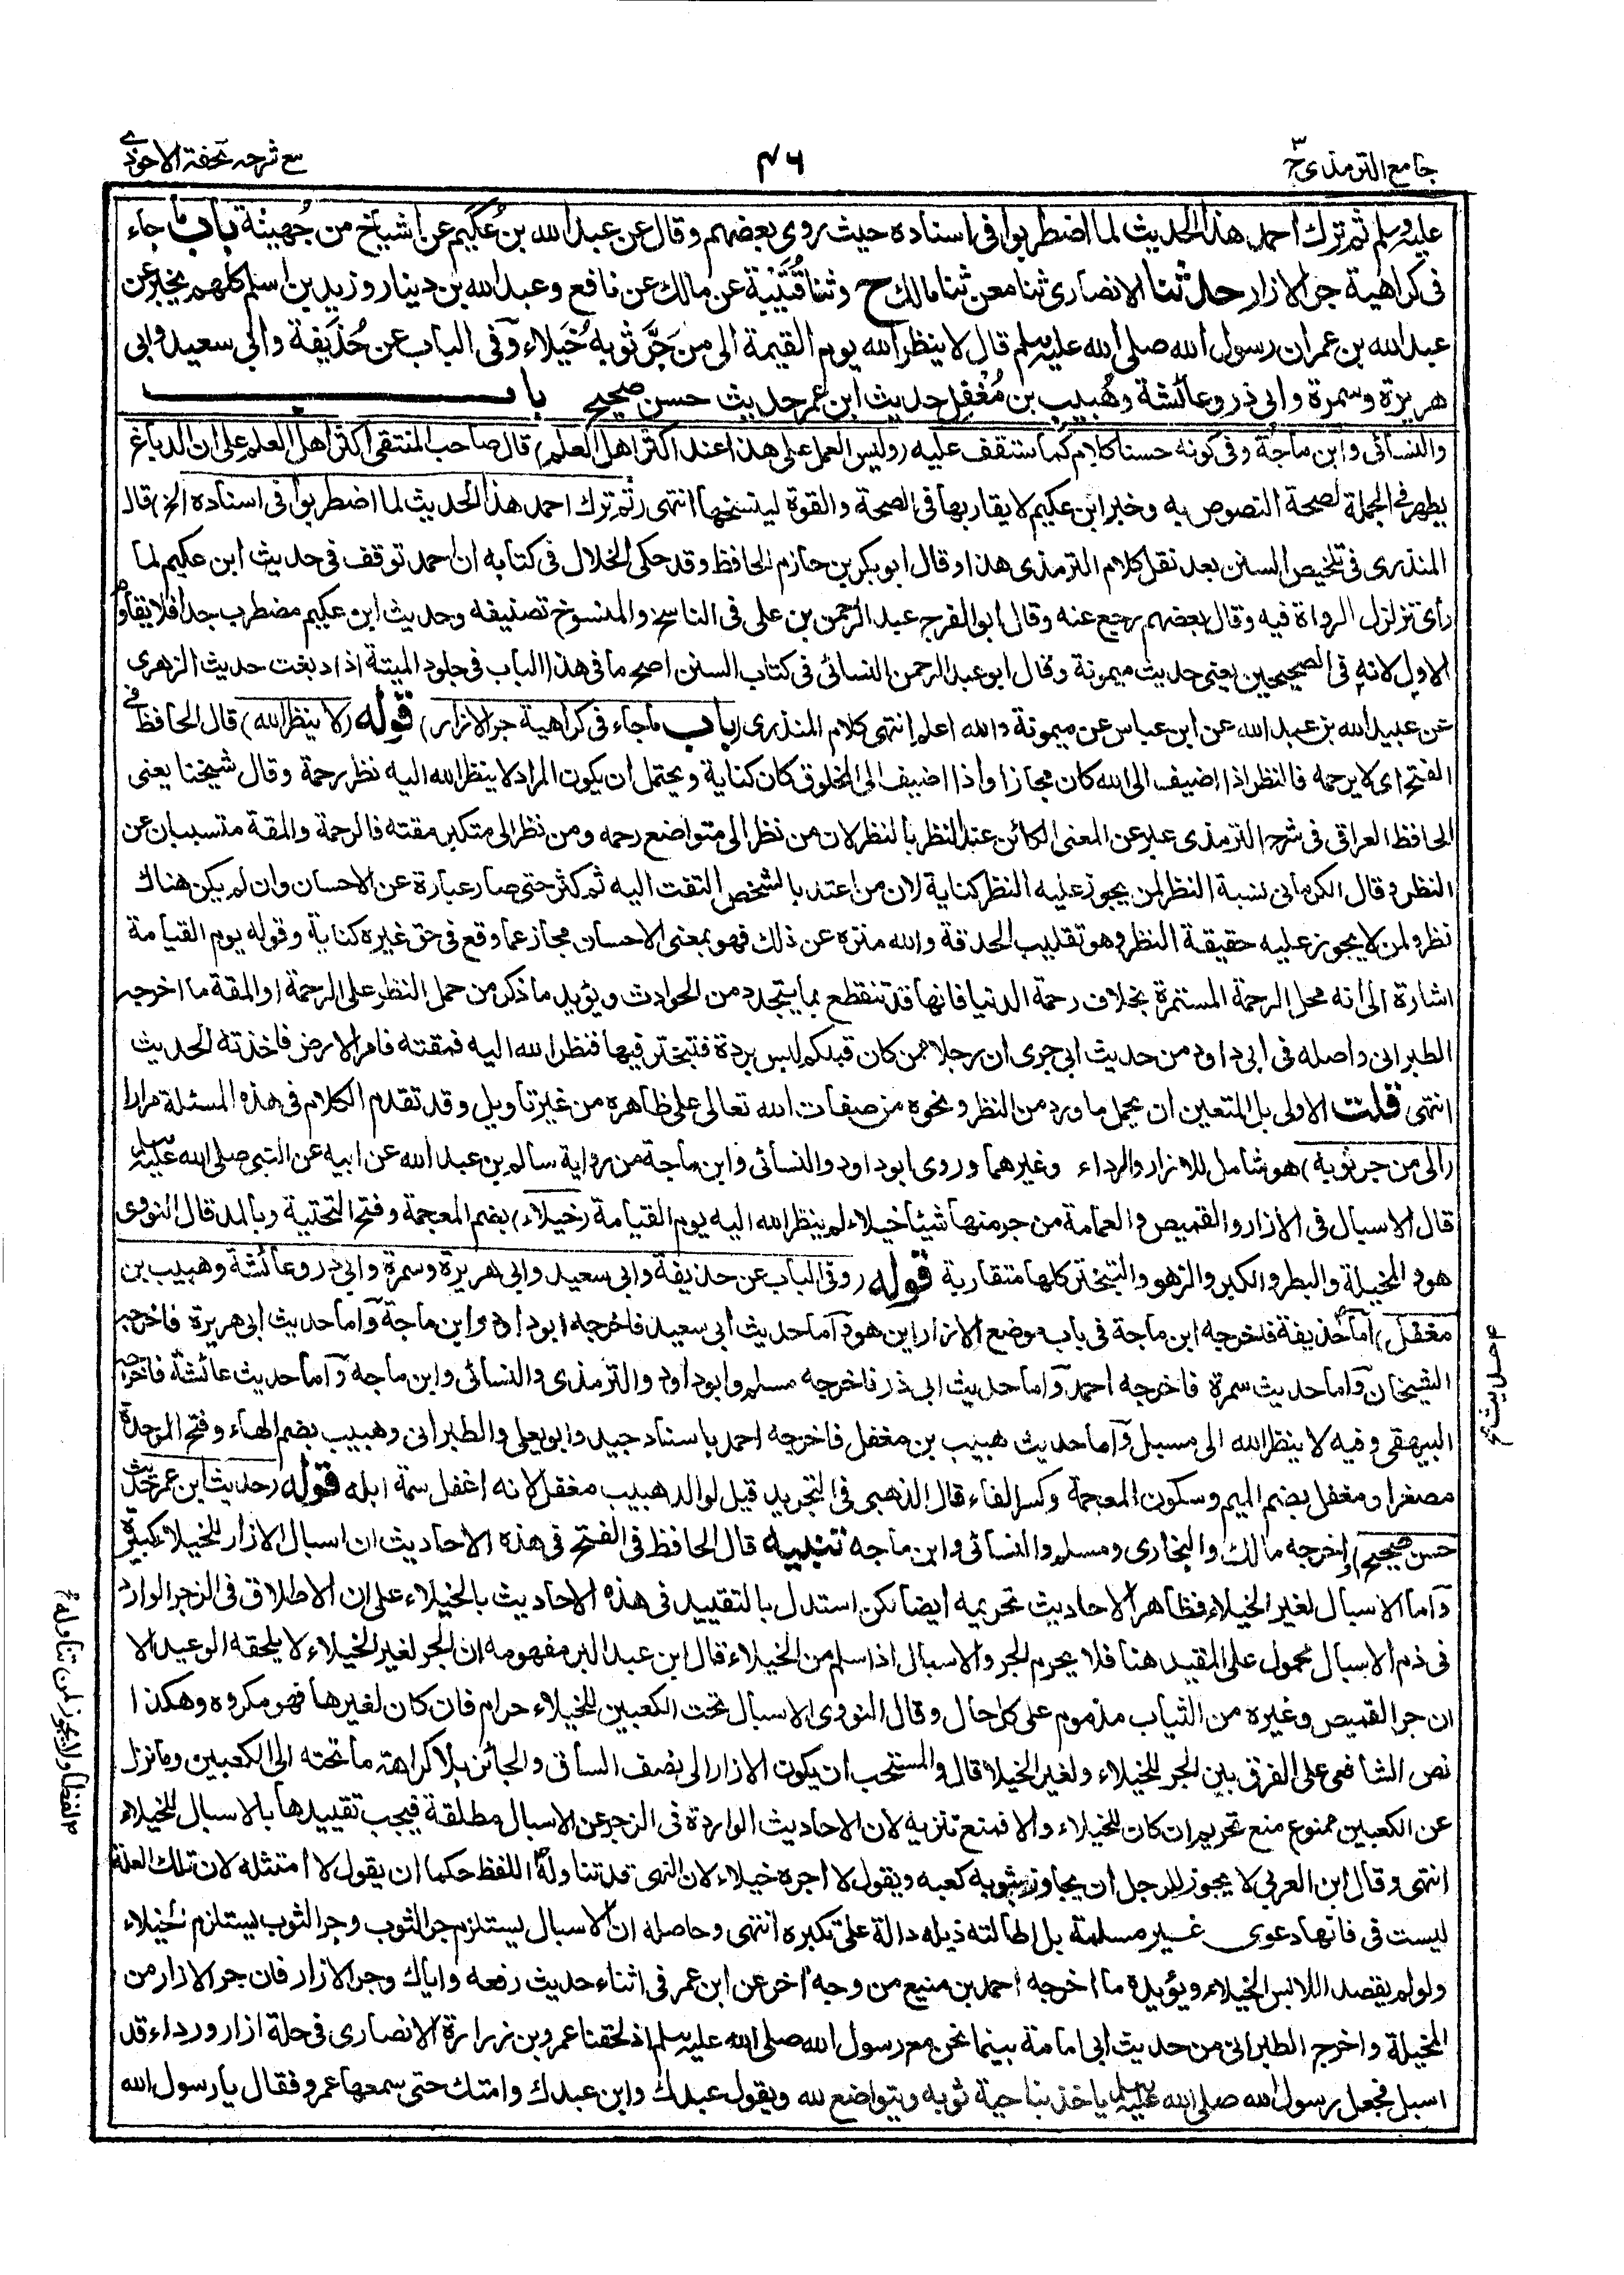 جامع الترمذي ج٣
٤٦
مع شرحه تحفة الاحوذي
عليه وسلم ثم ترك احمد هذا الحديث لما اضطربوا في اسناده حيث روى بعضهم وقال عن عبد الله بن عُكَيم عن اشياخ من جُهينة باب ما جاء
في كراهية جر الازار حدثنا الانصاري ثنا معن ثنا مالك ح وثنا قُتَيْبة عن مالك عن نافع وعبد الله بن دينار وزيد بن اسلم كلهم يخبر عن
عبد الله بن عمر ان رسول الله صلى الله عليه وسلم قال لا ينظر الله يوم القيمة الى من جَرَّ ثوبه خُيَلاء وفي الباب عن حُذَيفة وابي سعيد وابي
هريرة وسمرة وابي ذر وعائشة وهُبيب بن مُغْفِل حديث ابن عمر حديث حسن صحيح باب
والنسائى وابن ماجة وفى كونه حسنا كلام كما ستقف عليه (وليس العمل على هذا عند اكثر اهل العلم) قال صاحب المنتقى اكثر اهل العلم على ان الدباغ
يطهر في الجملة لصحة النصوص به وخبر ابن عكيم لا يقاربها فى الصحة والقوة لينسخها انتهى (ثم ترك احمد هذا الحديث لما اضطربوا فى اسناده الخ) قال
المنذرى فى تلخيص السنن بعد نقل كلام الترمذى هذا وقال ابو بكر بن حازم الحافظ وقد حكى الخلال فى كتابه ان احمد توقف فى حديث ابن عكيم لما
رأى تزلزل الرواة فيه وقال بعضهم رجع عنه وقال ابو الفرج عبد الرحمن بن على فى الناسخ والمنسوخ تصنيفه وحديث ابن عكيم مضطرب جدا فلا يقاوم
الاول لانه فى الصحيحين يعنى حديث ميمونة وقال ابو عبد الرحمن النسائى فى كتاب السنن اصح ما فى هذا الباب فى جلود الميتة اذا دبغت حديث الزهرى
عن عبيد الله بن عبد الله عن ابن عباس عن ميمونة والله اعلم انتهى كلام المنذرى (باب ما جاء فى كراهية جر الازار) قوله (لا ينظر الله) قال الحافظ فى
الفتح اى لا يرحمه فالنظر اذا اضيف الى الله كان مجازا واذا اضيف الى المخلوق كان كناية ويحتمل ان يكون المراد لا ينظر الله اليه نظر رحمة وقال شيخنا يعنى
الحافظ العراقى فى شرح الترمذى عبر عن المعنى الكائن عند النظر بالنظر لان من نظر الى متواضع رحمه ومن نظر الى متكبر مقته فالرحمة والمقة متسببان عن
النظر وقال الكرمانى نسبة النظر لمن يجوز عليه النظر كناية لان من اعتد بالشخص التفت اليه ثم كثر حتى صار عبارة عن الاحسان وان لم يكن هناك
نظر ولمن لا يجوز عليه حقيقة النظر وهو تقليب الحدقة والله منزه عن ذلك فهو بمعنى الاحسان مجاز عما وقع فى حق غيره كناية وقوله يوم القيامة
اشارة الى انه محل الرحمة المستمرة بخلاف رحمة الدنيا فانها قد تنقطع بما يتجدد من الحوادث ويؤيد ما ذكر من حمل النظر على الرحمة او المقة ما اخرجه
الطبرانى واصله فى ابى داود من حديث ابى جرى ان رجلا ممن كان قبلكم لبس بردة فتبختر فيها فنظر الله اليه فمقته فامر الارض فاخذته الحديث
انتهى قلت الاولى بل المتعين ان يحمل ما ورد من النظر ونحوه من صفات الله تعالى على ظاهره من غير تاويل وقد تقدم الكلام فى هذه المسئلة مرارا
(الى من جر ثوبه) هو شامل للازار والرداء وغيرهما وروى ابو داود والنسائى وابن ماجة من رواية سالم بن عبد الله عن ابيه عن النبى صلى الله عليه وسلم
قال الاسبال فى الازار والقميص والعمامة من جر منها شيئا خيلاء لم ينظر الله اليه يوم القيامة (خيلاء) بضم المعجمة وفتح التحتية وبالمد قال النووى
هو والمخيلة والبطر والكبر والزهو والتبختر كلها متقاربة قوله (وفى الباب عن حذيفة وابى سعيد وابى هريرة وسمرة وابى ذر وعائشة وهبيب بن
مغفل) اما حذيفة فاخرجه ابن ماجة فى باب موضع الازار اين هو واما حديث ابى سعيد فاخرجه ابو داود وابن ماجة واما حديث ابى هريرة فاخرجه
الشيخان واما حديث سمرة فاخرجه احمد واما حديث ابى ذر فاخرجه مسلم وابو داود والترمذى والنسائى وابن ماجه واما حديث عائشة فاخرجه
البيهقى وفيه لا ينظر الله الى مسبل واما حديث هبيب بن مغفل فاخرجه احمد باسناد جيد وابو يعلى والطبرانى وهبيب بضم الهاء وفتح الموحدة
مصغرا ومغفل بضم الميم وسكون المعجمة وكسر الفاء قال الذهبى فى التجريد قيل لوالد هبيب مغفل لانه اغفل سمة ابله قوله (حديث ابن عمر حديث
حسن صحيح) واخرجه مالك والبخارى ومسلم والنسائى وابن ماجه تنبيه قال الحافظ فى الفتح فى هذه الاحاديث ان اسبال الازار للخيلاء كبيرة
واما الاسبال لغير الخيلاء فظاهر الاحاديث تحريمه ايضا لكن استدل بالتقييد فى هذه الاحاديث بالخيلاء على ان الاطلاق فى الزجر الوارد
فى ذم الاسبال محمول على المقيد هنا فلا يحرم الجر والاسبال اذا سلم من الخيلاء قال ابن عبد البر مفهومه ان الجر لغير الخيلاء لا يلحقه الوعيد الا
ان جر القميص وغيره من الثياب مذموم على كل حال وقال النووى الاسبال تحت الكعبين للخيلاء حرام فان كان لغيرها فهو مكروه وهكذا
نص الشافعى على الفرق بين الجر للخيلاء ولغير الخيلاء قال والمستحب ان يكون الازار الى نصف الساق والجائز بلا كراهة ما تحته الى الكعبين وما نزل
عن الكعبين ممنوع منع تحريم ان كان للخيلاء والا فمنع تنزيه لان الاحاديث الواردة فى الزجر عن الاسبال مطلقة فيجب تقييدها بالاسبال للخيلاء
انتهى وقال ابن العربى لا يجوز للرجل ان يجاوز بثوبه كعبه ويقول لا اجره خيلاء لان النهى قد تناوله اللفظ حكما ان يقول لا امتثله لان تلك العلة
ليست فى فانها دعوى غير مسلمة بل اطالته ذيله دالة على تكبره انتهى وحاصله ان الاسبال يستلزم جر الثوب وجر الثوب يستلزم الخيلاء
ولو لم يقصد اللابس الخيلاء ويؤيده ما اخرجه احمد بن منيع من وجه اخر عن ابن عمر فى اثناء حديث رفعه واياك وجر الازار فان جر الازار من
المخيلة واخرج الطبرانى من حديث ابى امامة بينما نحن مع رسول الله صلى الله عليه وسلم اذ لحقنا عمرو بن زرارة الانصارى فى حلة ازار ورداء قد
اسبل فجعل رسول الله صلى الله عليه وسلم ياخذ بناحية ثوبه ويتواضع لله ويقول عبدك وابن عبدك وامتك حتى سمعها عمرو فقال يا رسول الله
حديث
لفظا ولا يجوز لمن تناوله